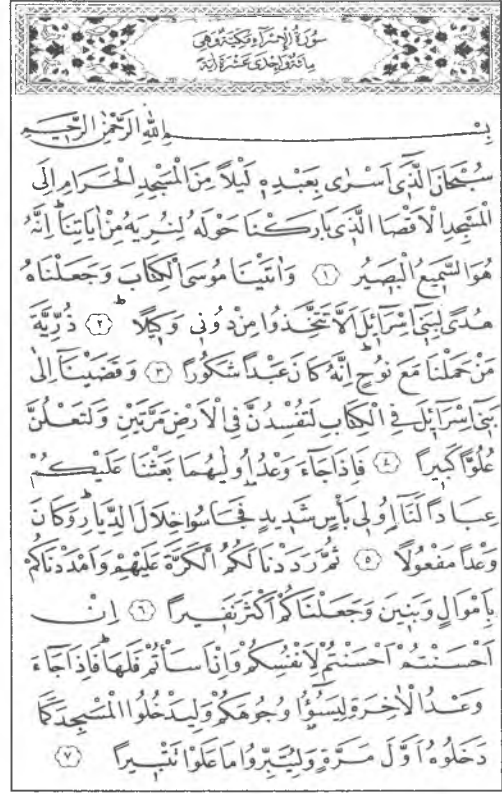 سُورَةُ الْإِسْرَاءِ مَكِّيَّةٌ وَهِيَ
مِائَةٌ وَإِحْدَى عَشْرَةَ اٰيَةً
بِسْمِ اللهِ الرَّحْمٰنِ الرَّحِيمِ
سُبْحَانَ الَّذِٓى اَسْرٰى بِعَبْدِهٖ لَيْلاً مِنَ الْمَسْجِدِ الْحَرَامِ اِلَى
الْمَسْجِدِ الْاَقْصَا الَّذِى بَارَكْنَا حَوْلَهُ لِنُرِيَهُ مِنْ اٰيَاتِنَاۜ اِنَّهُ
هُوَ السَّمِيعُ الْبَصِيرُ ﴿١﴾ وَاٰتَيْنَا مُوسَى الْكِتَابَ وَجَعَلْنَاهُ
هُدًى لِبَنِٓى اِسْرَٓائِلَ اَلَّا تَتَّخِذُوا مِنْ دُونِى وَكِيلًاۜ ﴿٢﴾ ذُرِّيَّةَ
مَنْ حَمَلْنَا مَعَ نُوحٍۜ اِنَّهُ كَانَ عَبْدًا شَكُورًا ﴿٣﴾ وَقَضَيْنَٓا اِلٰى
بَنِٓى اِسْرَٓائِلَ فِى الْكِتَابِ لَتُفْسِدُنَّ فِى الْاَرْضِ مَرَّتَيْنِ وَلَتَعْلُنَّ
عُلُوًّا كَبِيرًا ﴿٤﴾ فَاِذَا جَٓاءَ وَعْدُ اُو۫لٰيهُمَا بَعَثْنَا عَلَيْكُمْ
عِبَادًا لَنَٓا اُو۬لِى بَأْسٍ شَدِيدٍ فَجَاسُوا خِلَالَ الدِّيَارِۜ وَكَانَ
وَعْدًا مَفْعُولًا ﴿٥﴾ ثُمَّ رَدَدْنَا لَكُمُ الْكَرَّةَ عَلَيْهِمْ وَاَمْدَدْنَاكُمْ
بِاَمْوَالٍ وَبَنِينَ وَجَعَلْنَاكُمْ اَكْثَرَ نَفِيرًا ﴿٦﴾ اِنْ
اَحْسَنْتُمْ اَحْسَنْتُمْ لِاَنْفُسِكُمْ وَاِنْ اَسَأْتُمْ فَلَهَاۜ فَاِذَا جَٓاءَ
وَعْدُ الْاٰخِرَةِ لِيَسُٓؤُ۫ا وُجُوهَكُمْ وَلِيَدْخُلُوا الْمَسْجِدَ كَمَا
دَخَلُوهُ اَوَّلَ مَرَّةٍ وَلِيُتَبِّرُوا مَا عَلَوْا تَتْبِيرًا ﴿٧﴾